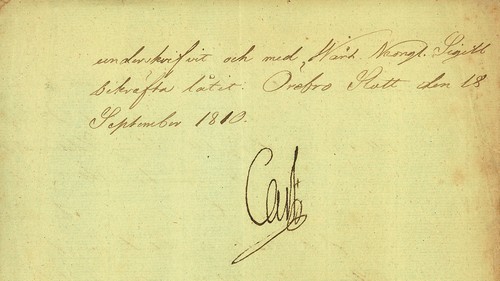 underskrifvit och med Wårt Kongl. Sigill
bekräfta låtit. Örebro Slott den 18
September 1810.
Carl